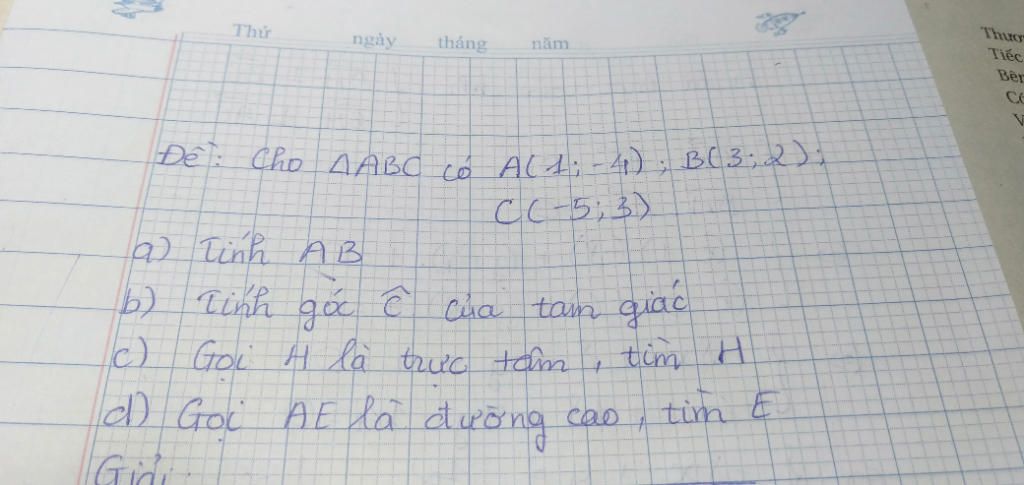 Thứ ngày tháng năm
Đề: Cho ΔABC có A(1; -4); B(3; 2);
C(-5; 3)
a) Tính AB
b) Tính góc Ĉ của tam giác
c) Gọi H là trực tâm, tìm H
d) Gọi AE là đường cao, tìm E
Giải
Tiếc